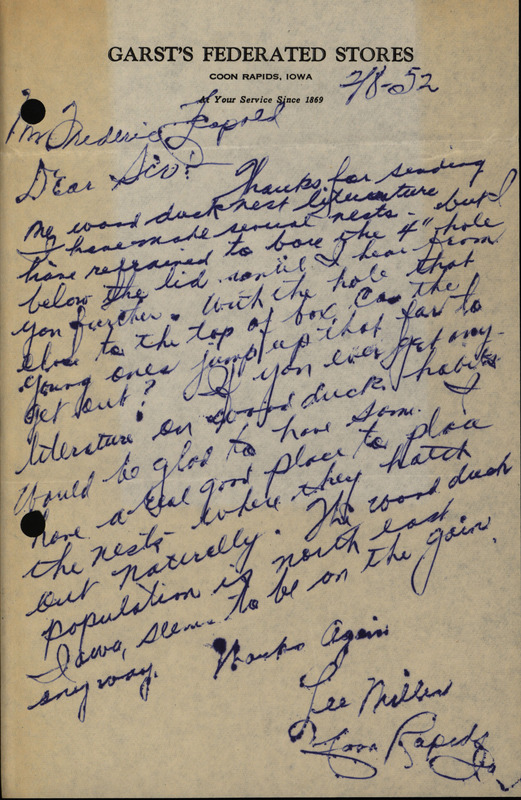 GARST'S FEDERATED STORES
COON RAPIDS, IOWA
At Your Service Since 1869
2/8-52
Mr Frederic Leopold
Dear Sir:
Thanks for sending
me wood duck nest literature
I have made several nests - but I
have refrained to bore the 4" hole
below the lid until I hear from
you further. With the hole that
close to the top of box, can the
young ones jump up that far to
get out? If you ever get any
literature on wood duck habits
would be glad to have some. I
have a real good place to place
the nests where they hatch
out naturally. The wood duck
population in north east
Iowa, seems to be on the gain
anyway.
Thanks Again
Lee Miller
Coon Rapids
Ia